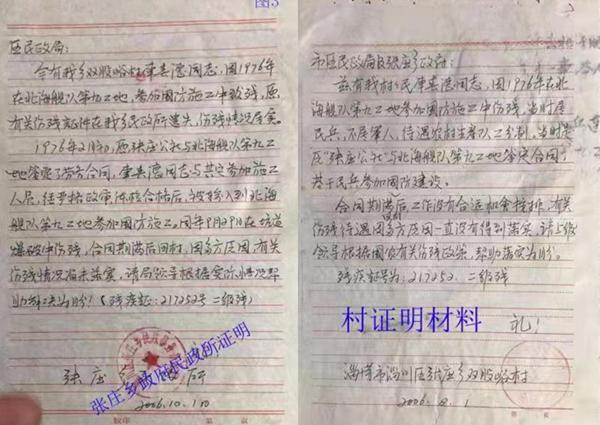 图3
区民政局：
今有我乡双股峪村肇喜德同志，因1976年
在北海舰队第九工地，参加国防施工中致残，原
有关伤残证件在我乡民政所遗失，伤残情况属实。
1976年2月初，原张庄公社与北海舰队第九工
地签定了劳务合同，肇喜德同志与其它参加施工
人员，经严格政审，体检合格后，被招入到北海
舰队第九工地参加国防施工。同年9月29日在坑道
爆破中伤残，合同期满后回村，因多方原因，有关
伤残情况尚未落实，请局领导根据实际情况帮
助解决为盼！（残疾证：217252号 二级残）
张庄 所
张庄乡政府民政所证明
2006.10.10
市区民政局及张庄乡政府：
兹有我村村民肇喜德同志，因1976年在北
海舰队第九工地参加国防施工中伤残，当时是
民兵，不属军人，待遇农村
原"张庄公社"与北海舰队第九工地签定合同，
基于民兵参加国防建设。
合同期满后，工作没有合适和安排，有关
伤残待遇因多方原因一直没有得到落实，请上级
领导根据国家有关伤残政策，帮助落实为盼。
残疾证号为：217252. 二级残
村证明材料
礼！
淄博市淄川区张庄乡双股峪村